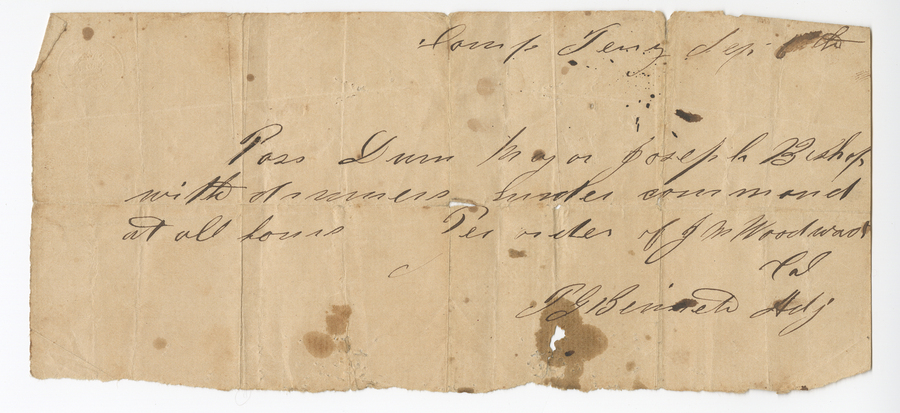 Camp Terry Sep th
Pass Drum Major Joseph Bishop
with drummers under command
at all hours Per order of J W Woodward
Col
P G Bennett Adj